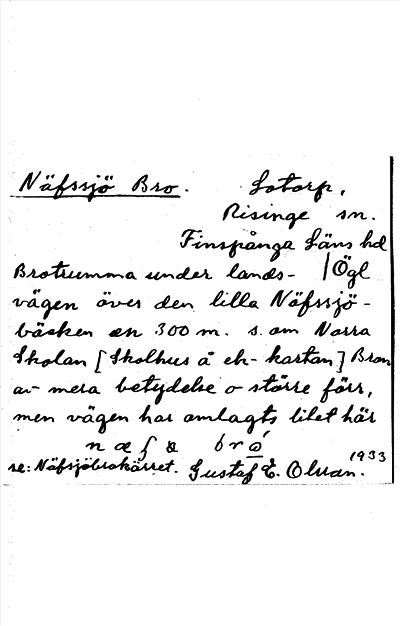 Näfssjö Bro. Lotorp,
Risinge sn.
Finspånga Läns hd
Brotrumma under lands- /Ögl
vägen över den lilla Näfssjö-
bäcken en 300 m. s. om Norra
Skolan [Skolhus å ek-kartan] Bron
av mera betydelse o större förr,
men vägen har omlagts litet här
bró
se: Näfsjöbrokärret. Gustaf E. Olsson. 1933